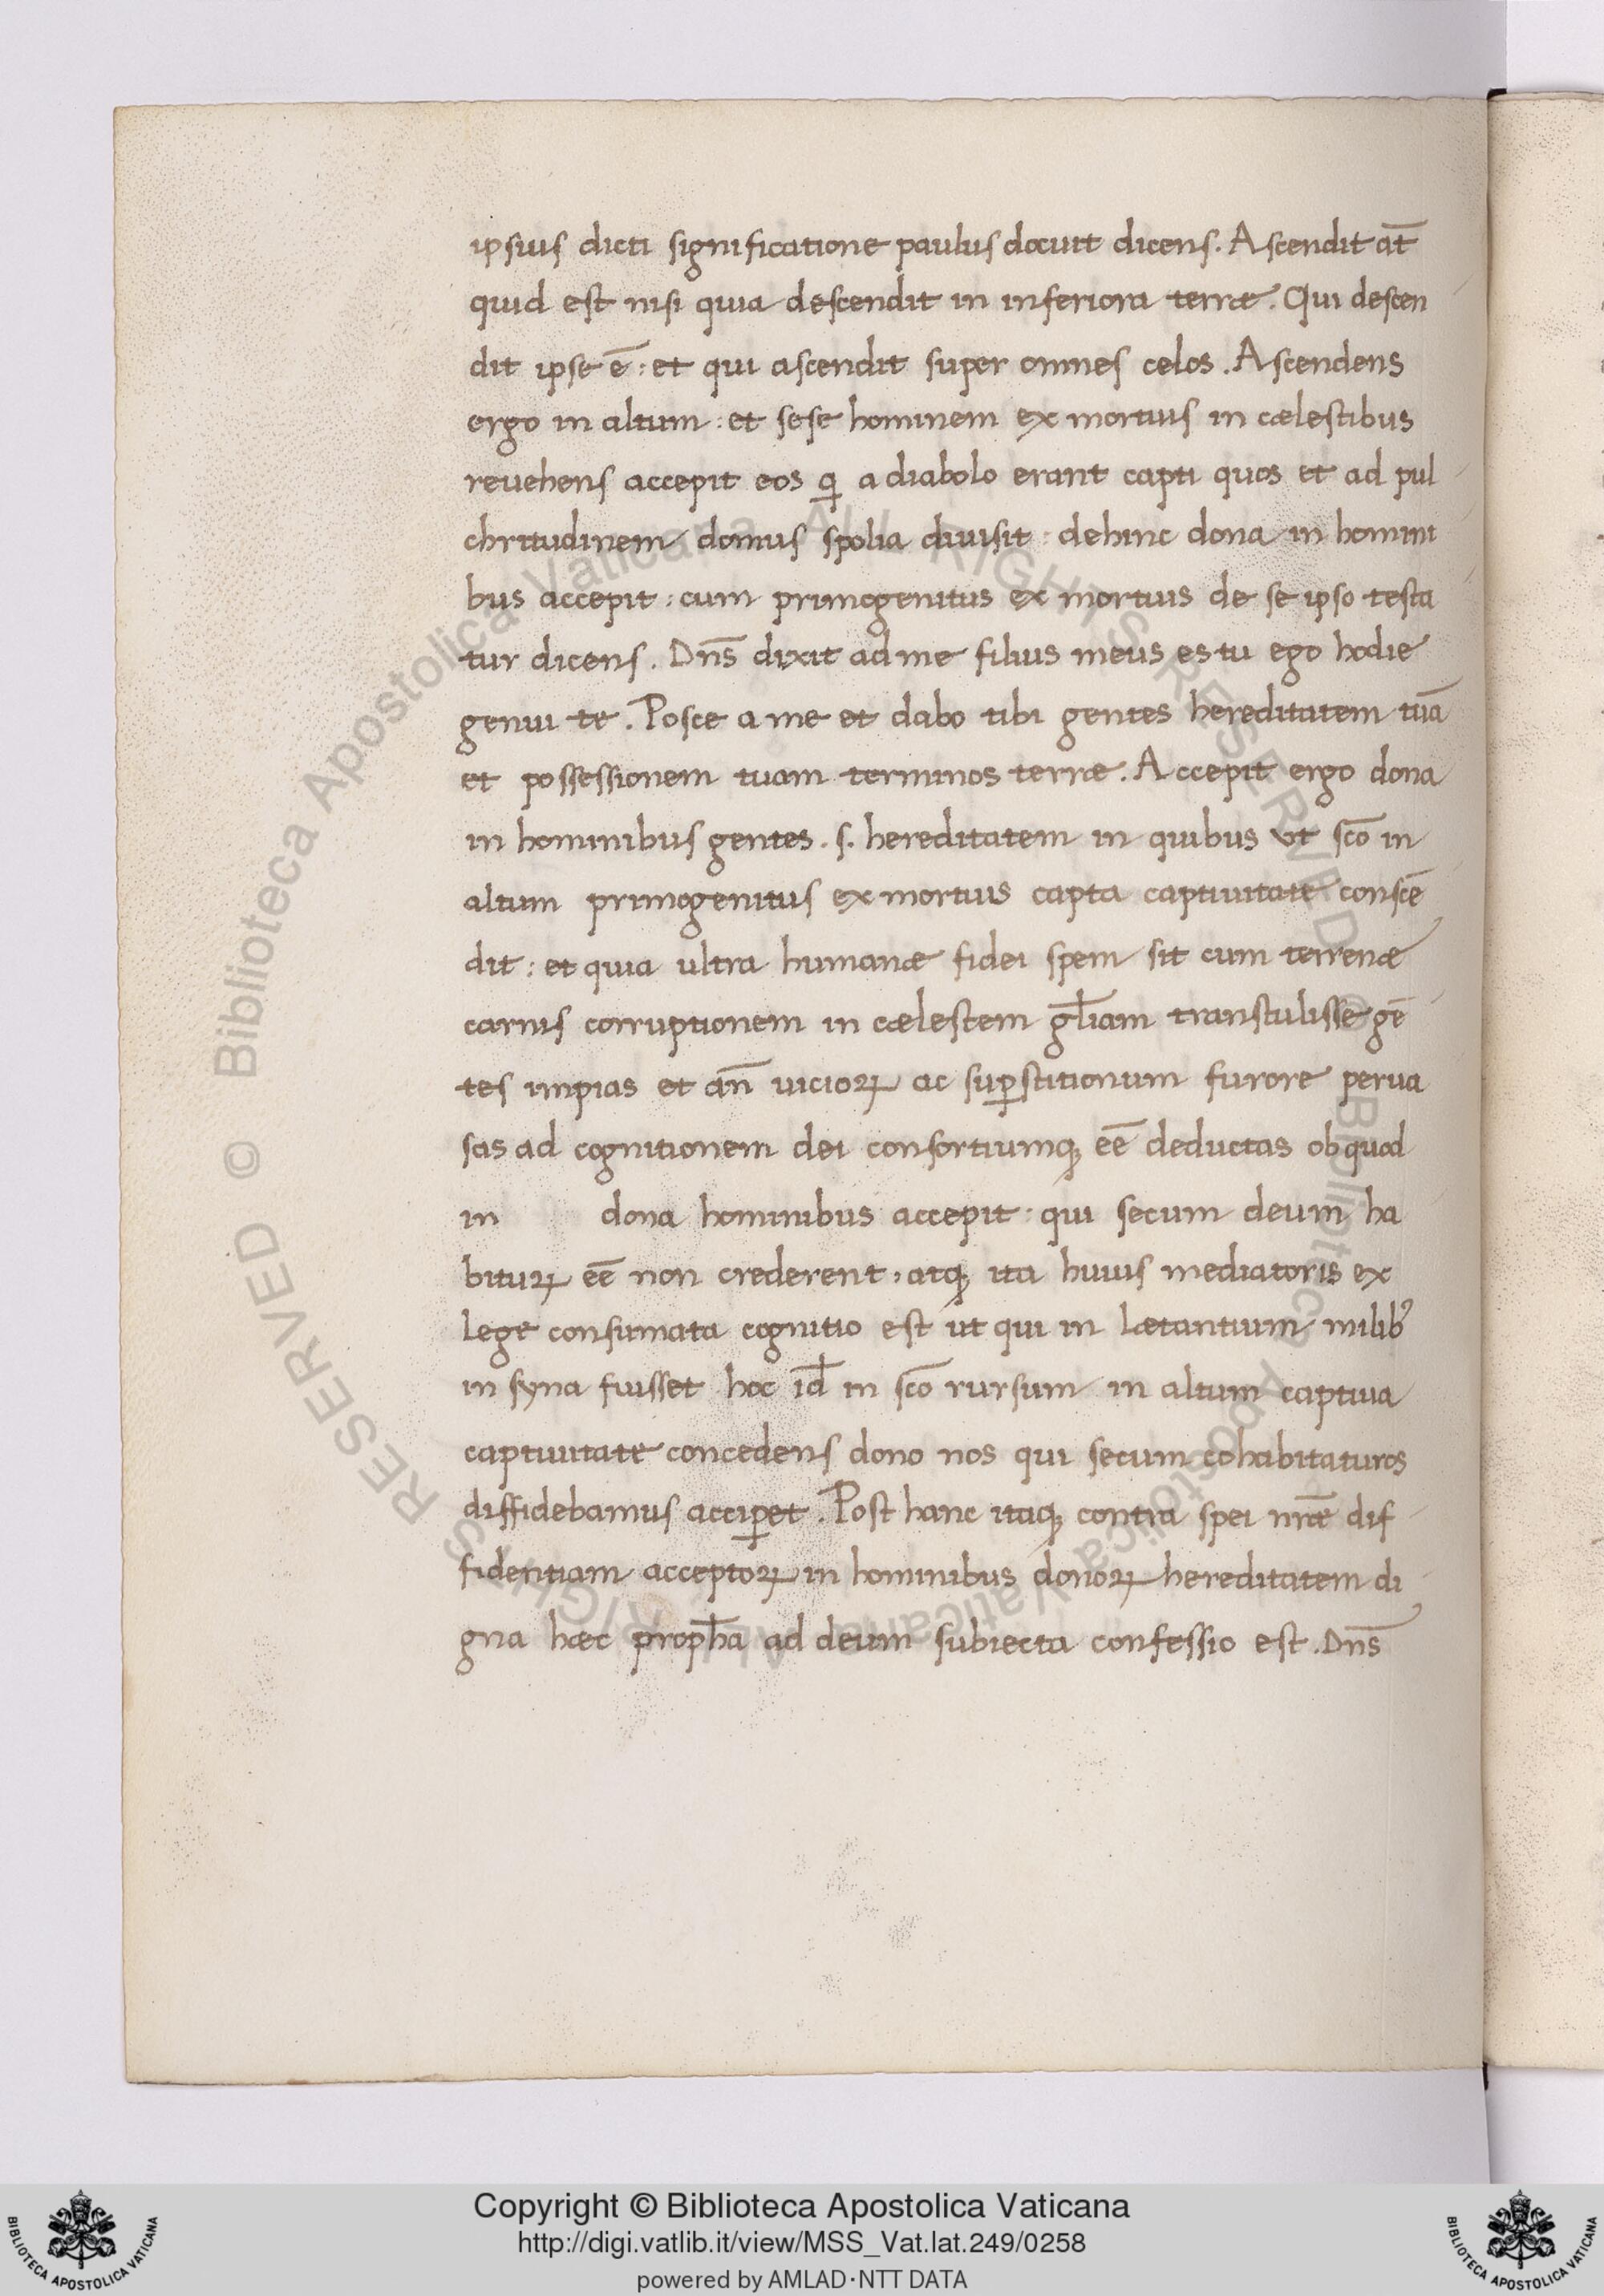 ipsius dicti significatione paulus docuit dicens. Ascendit at̄
quid est nisi quia descendit in inferiora terræ. Qui descen
dit ipse ē: et qui ascendit super omnes celos. Ascendens
ergo in altum: et sese hominem ex mortuis in cælestibus
reuehens accepit eos qi a diabolo erant capti quos et ad pul
chritudinem domus spolia diuisit: dehinc dona in homini
bus accepit: cum primogenitus ex mortuis de se ipso testa
tur dicens. Dn̄s dixit ad me filius meus es tu ego hodie
genui te. Posce a me et dabo tibi gentes hereditatem tuā
et possessionem tuam terminos terræ. Accepit ergo dona
in hominibus gentes. s. hereditatem in quibus ut sc̄o in
altum primogenitus ex mortuis capta captiuitate conscē
dit: et quia ultra humanæ fidei spem sit cum terrenæ
carnis corruptionem in cælestem gl̄iam transtulisse gē
tes impias et an̄ uicioꝝ ac suꝑstitionum furore perua
sas ad cognitionem dei consortiumqꝫ eē deductas ob quod
in dona hominibus accepit: qui secum deum ha
bituꝝ eē non crederent, atqꝫ ita huius mediatoris ex
lege consumata cognitio est ut qui in lætantium milibꝰ
in syna fuisset hoc id̄ in sc̄o rursum in altum captiua
captiuitate concedens dono nos qui secum cohabitaturos
diffidebamus acciꝑet. Post hanc itaqꝫ contra spei nr̄æ dif
fidentiam acceptoꝝ in hominibus donoꝝ hereditatem di
gna hæc proph̄a ad deum subiecta confessio est. Dn̄s
© Biblioteca Apostolica Vaticana ALL RIGHTS RESERVED © Biblioteca Apostolica Vaticana ALL RIGHTS RESERVED
Copyright © Biblioteca Apostolica Vaticana
http://digi.vatlib.it/view/MSS_Vat.lat.249/0258
powered by AMLAD·NTT DATA
BIBLIOTECA APOSTOLICA VATICANA
BIBLIOTECA APOSTOLICA VATICANA